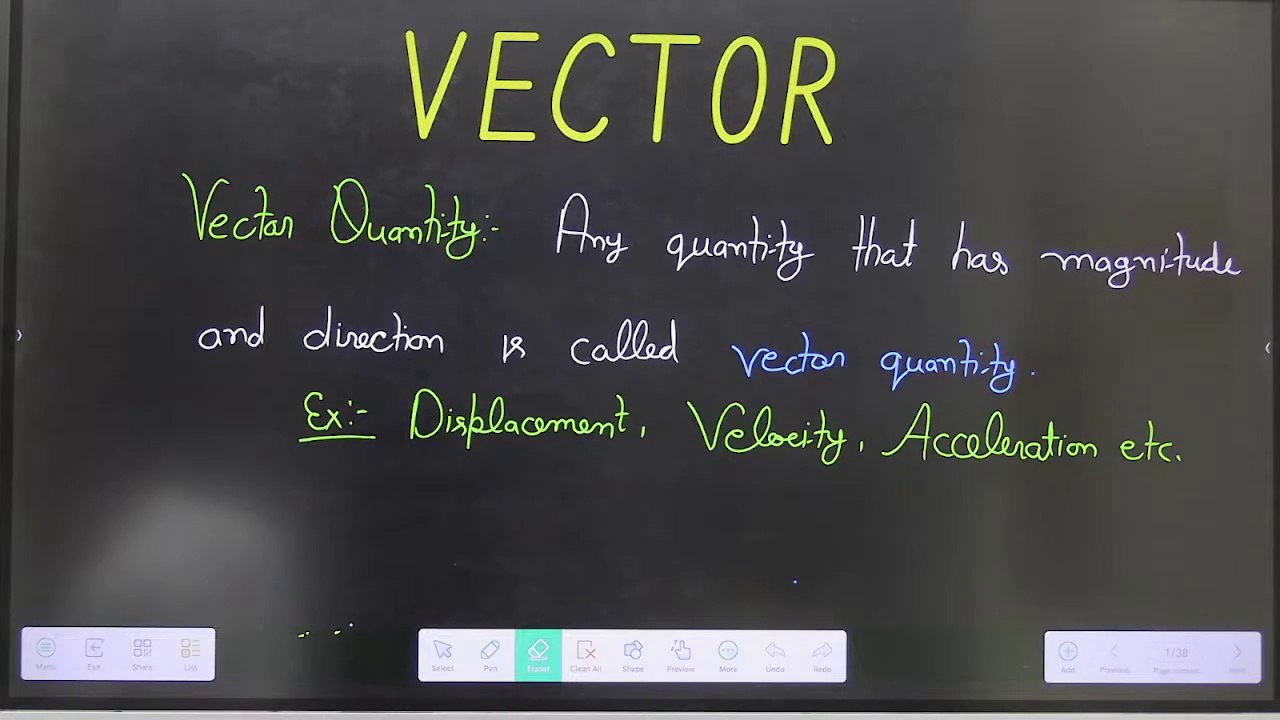 VECTOR
Vector Quantity:- Any quantity that has magnitude
and direction is called vector quantity.
Ex:- Displacement, Velocity, Acceleration etc.
Menu Exit Share List Select Pen Eraser Clean All Shape Preview More Undo Redo Add Previous 1/38 Page number